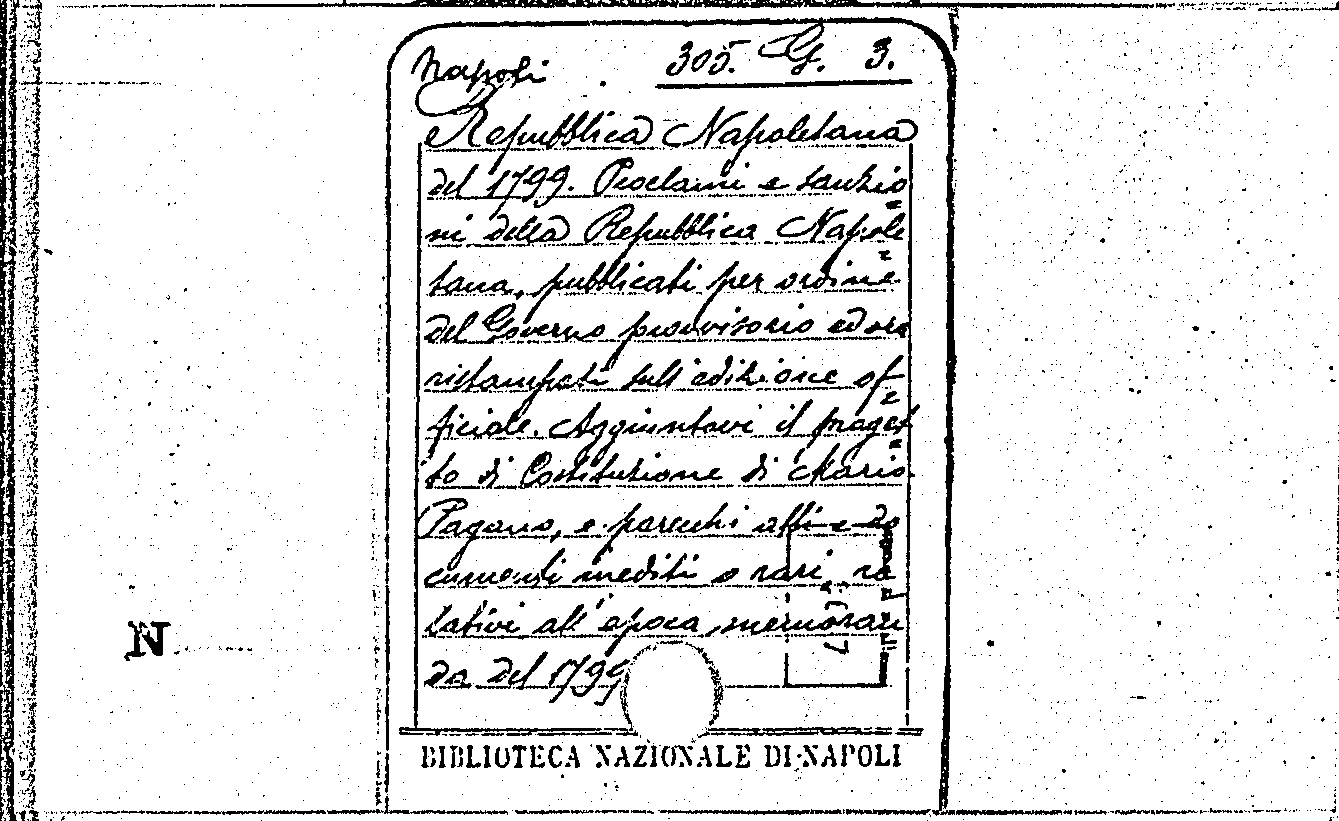 Napoli 305. G. 3.
Repubblica Napoletana
del 1799. Proclami e sanzio
=
ni della Repubblica Napole
=
tana, pubblicati per ordine
del Governo provvisorio ed ora
ristampati sull'edizione of
=
ficiale. Aggiuntovi il proget
=
to di Costituzione di Mario
Pagano, e parecchi atti e do
cumenti inediti o rari, re
lativi all'epoca memoran
da del 1799
N
BIBLIOTECA NAZIONALE DI NAPOLI